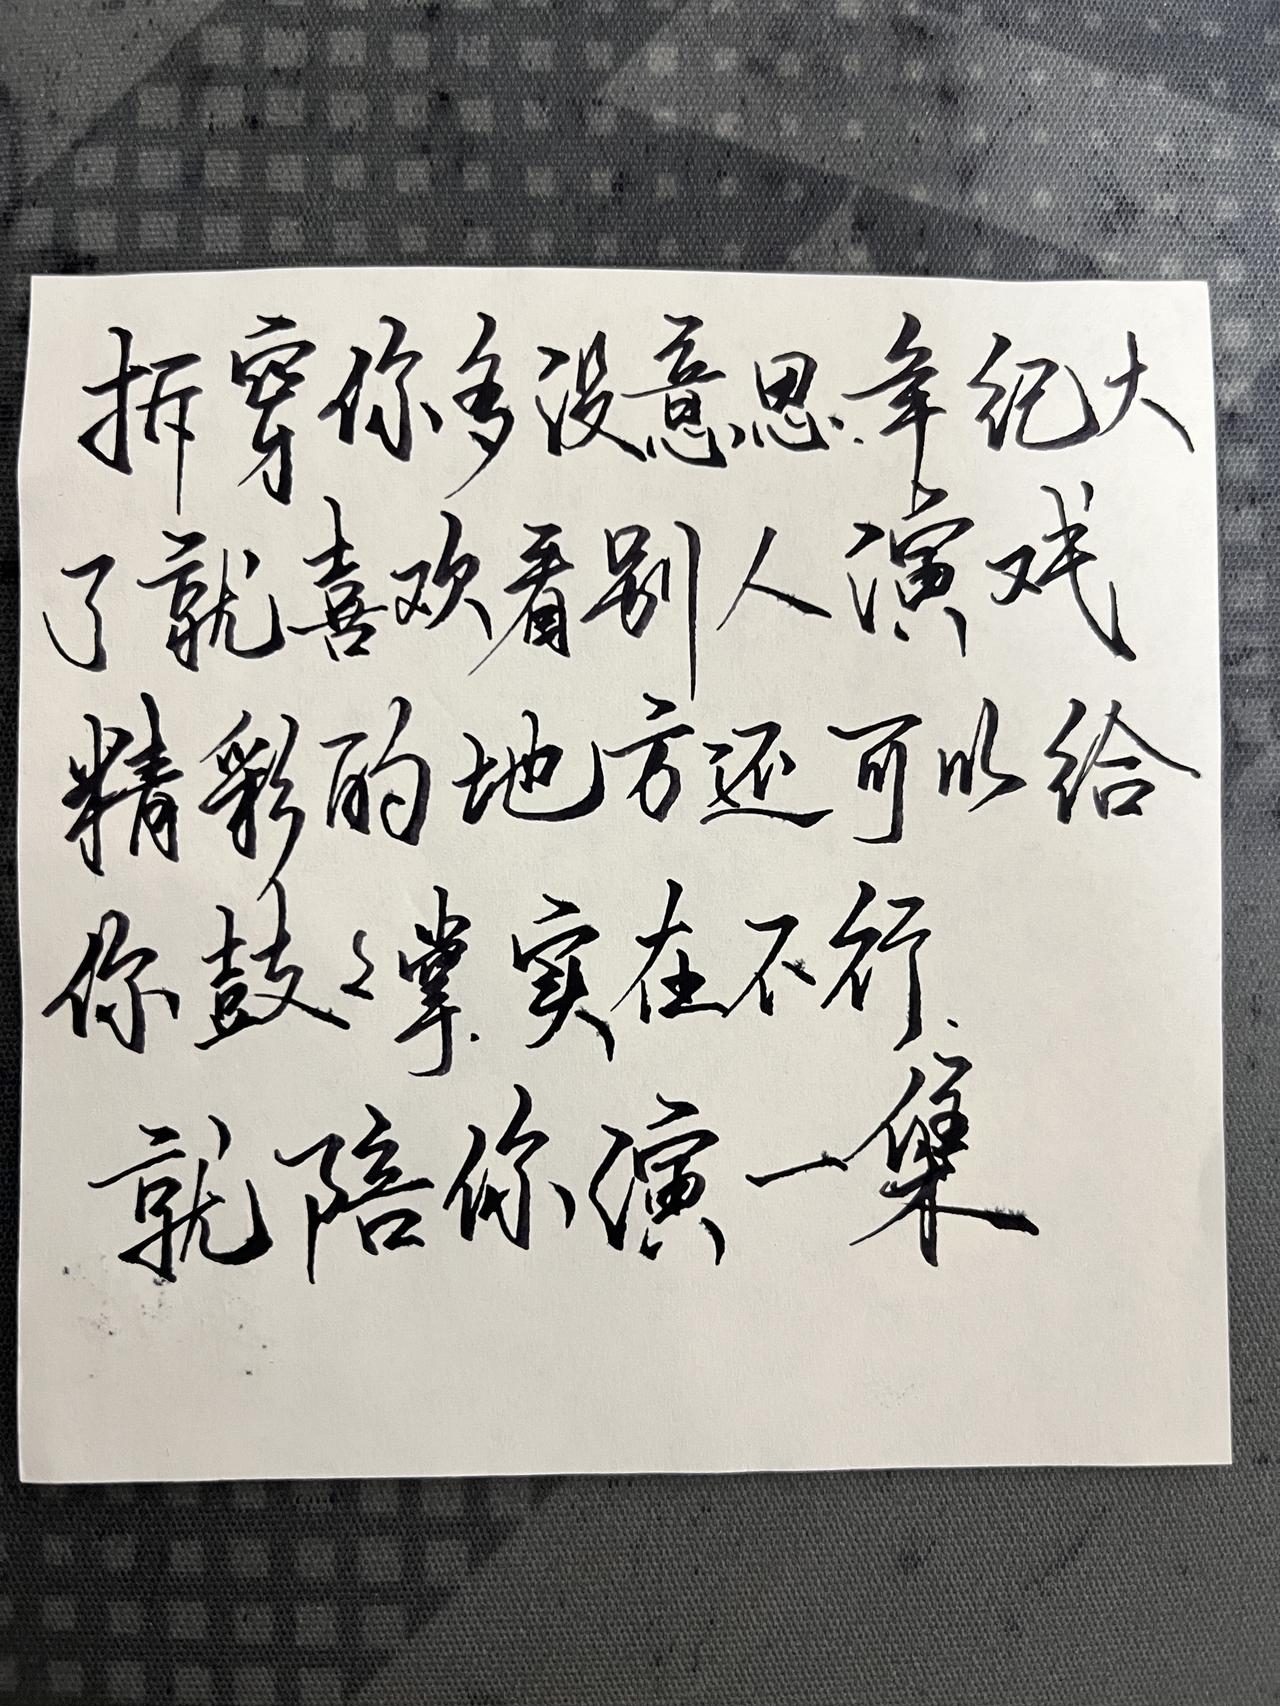 拆穿你多没意思.年纪大
了就喜欢看别人演戏
精彩的地方还可以给
你鼓々掌.实在不行.
就陪你演一集